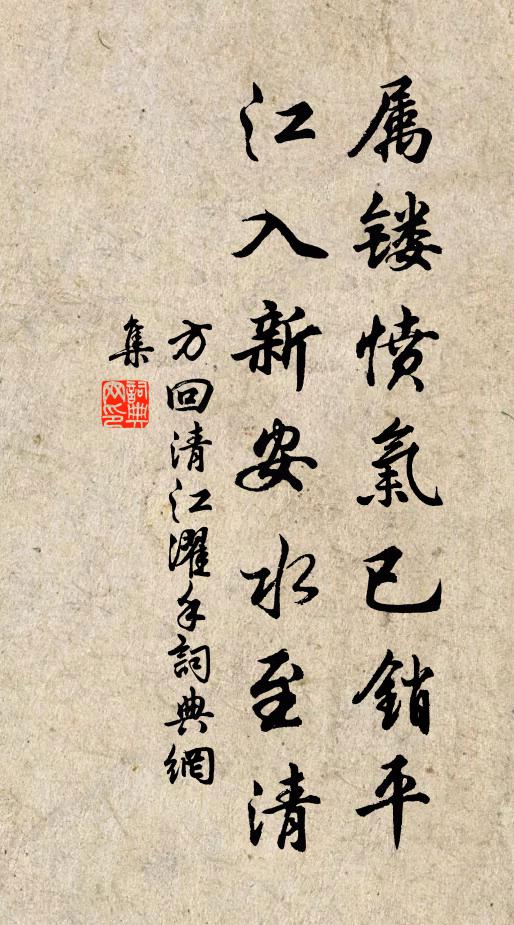 属镂愤氣已銷平
江入新安水至清
方回清江濯手詞典網
集
詞典网印